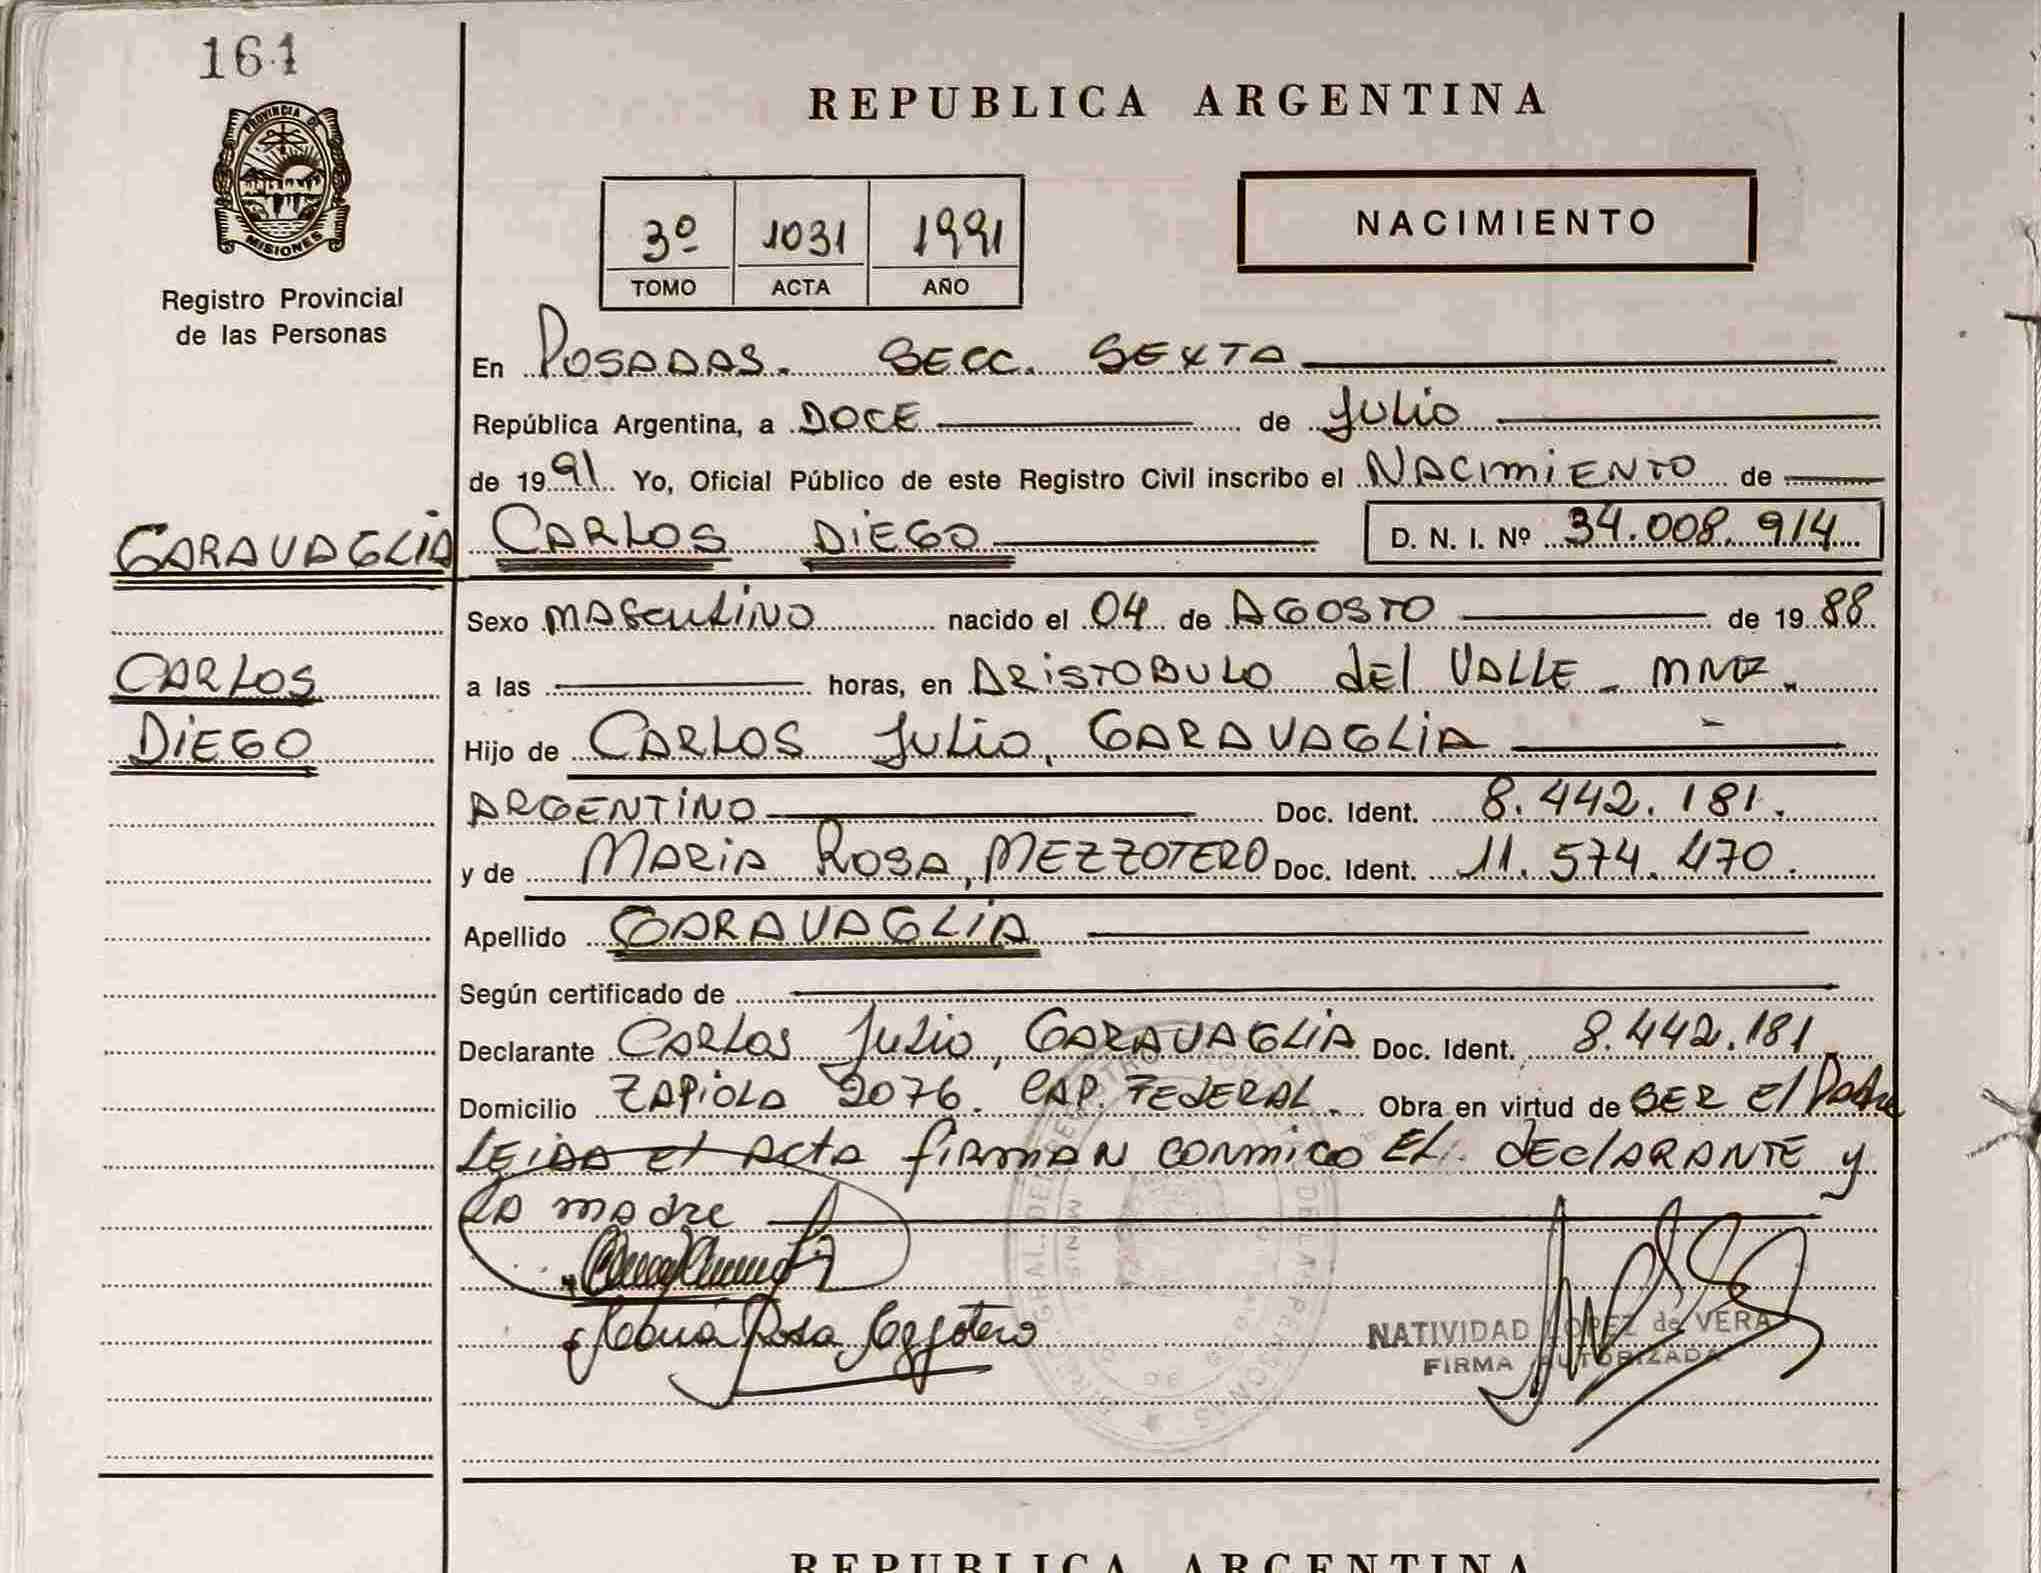 161
PROVINCIA DE
MISIONES
Registro Provincial
de las Personas
GARAVAGLIA
CARLOS
DIEGO
REPUBLICA ARGENTINA
3º 1031 1991
TOMO ACTA AÑO
NACIMIENTO
En POSADAS. SECC. SEXTA
República Argentina, a DOCE de Julio
de 1991 Yo, Oficial Público de este Registro Civil inscribo el NACIMIENTO de
CARLOS DIEGO D. N. I. Nº 34.008.914
Sexo MASCULINO nacido el 04 de AGOSTO de 1988
a las horas, en ARISTOBULO del VALLE - MNES.
Hijo de CARLOS Julio, GARAVAGLIA
ARGENTINO Doc. Ident. 8.442.181.
y de MARIA ROSA, MEZZOTERO Doc. Ident. 11.574.470.
Apellido GARAVAGLIA
Según certificado de
Declarante CARLOS Julio, GARAVAGLIA Doc. Ident. 8.442.181
Domicilio ZAPIOLA 2076. CAP. FEDERAL. Obra en virtud de SER El Padre
LEIDA el ACTA FIRMAN CONMIGO EL DECLARANTE y
LA madre
Maria Rosa Mezzotero
NATIVIDAD LOPEZ de VERA
FIRMA AUTORIZADA
REPUBLICA ARGENTINA